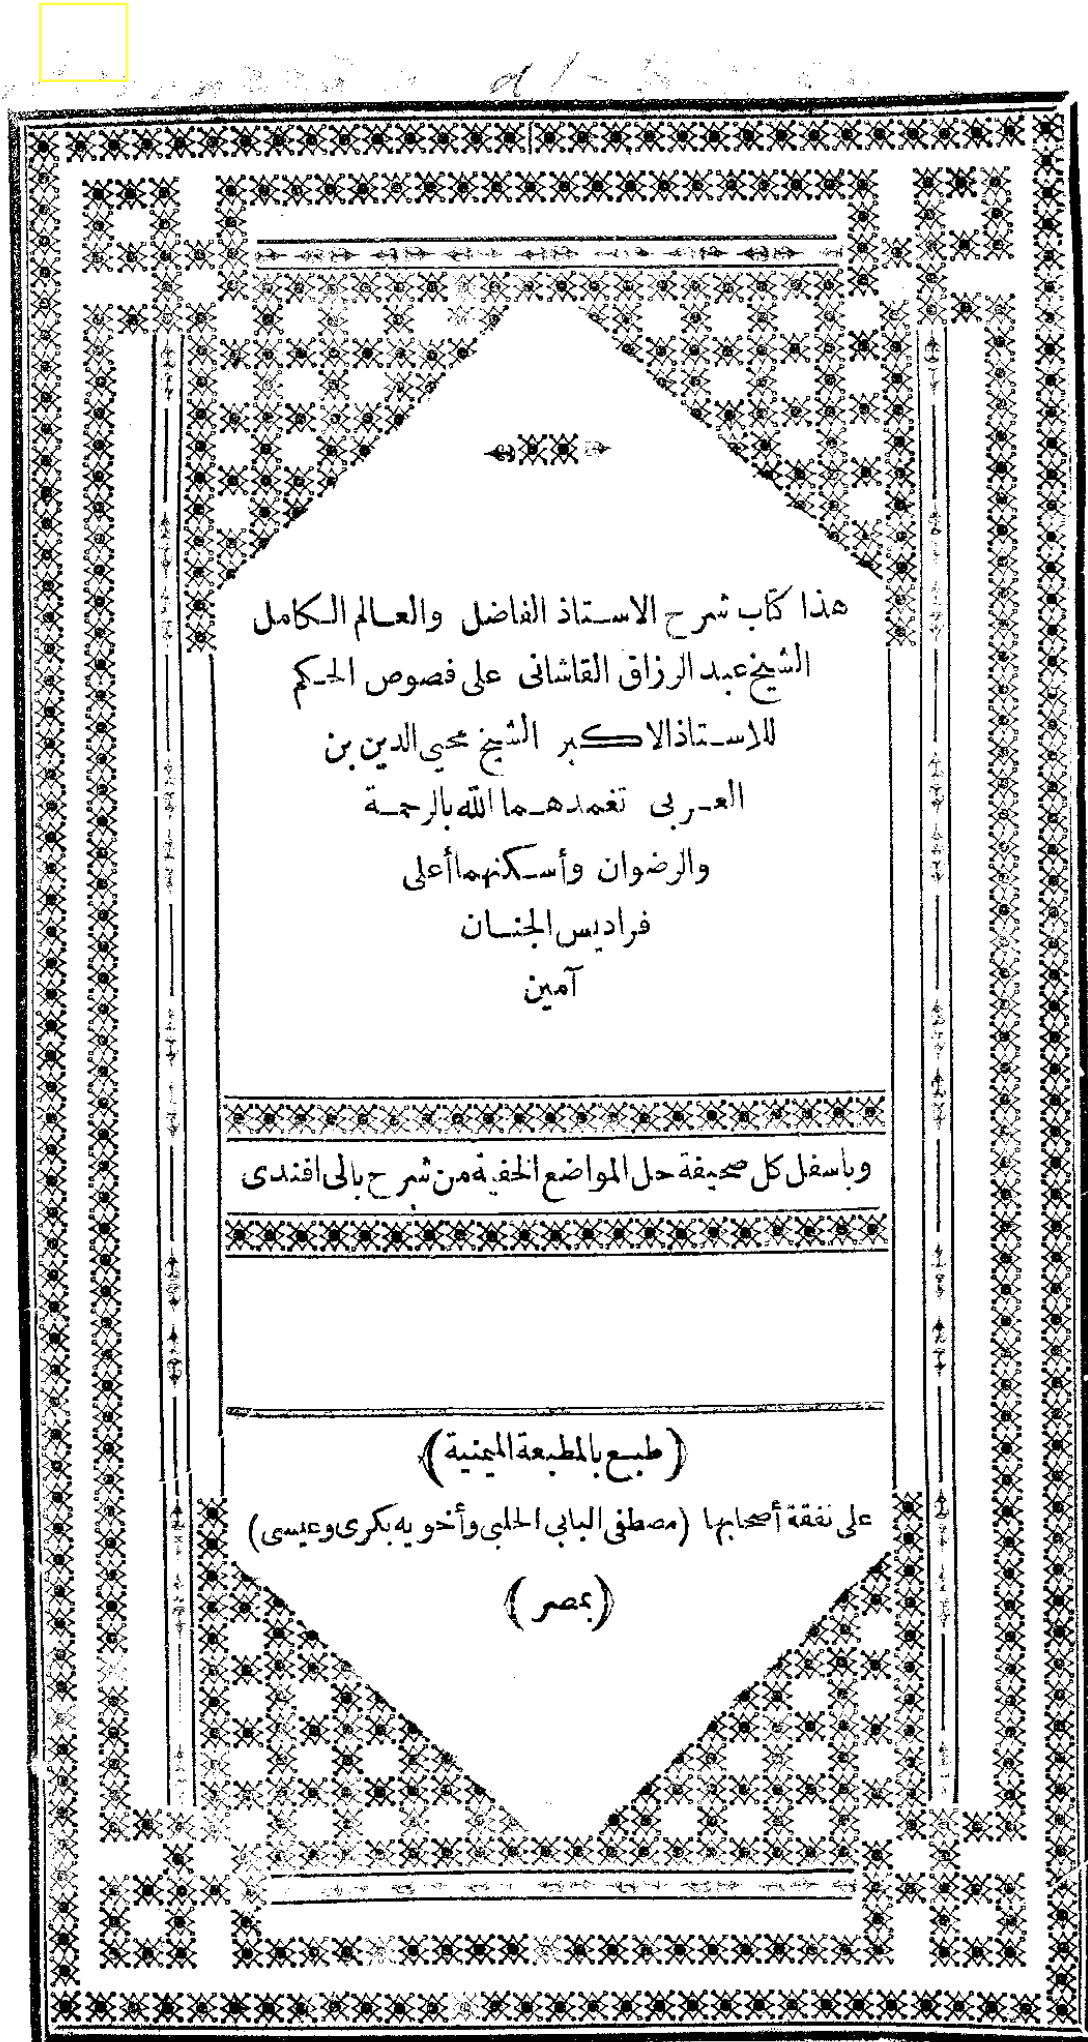 هذا كتاب شرح الاستاذ الفاضل والعالم الكامل
الشيخ عبد الرزاق القاشانى على فصوص الحكم
للاستاذ الاكبر الشيخ محيي الدين بن
العربى تغمدهما الله بالرحمة
والرضوان وأسكنهما أعلى
فراديس الجنان
آمين
وبأسفل كل صحيفة حل المواضع الخفية من شرح بالى افندى
(طبع بالمطبعة الميمنية)
على نفقة أصحابها (مصطفى البابى الحلبى وأخويه بكرى وعيسى)
(بمصر)